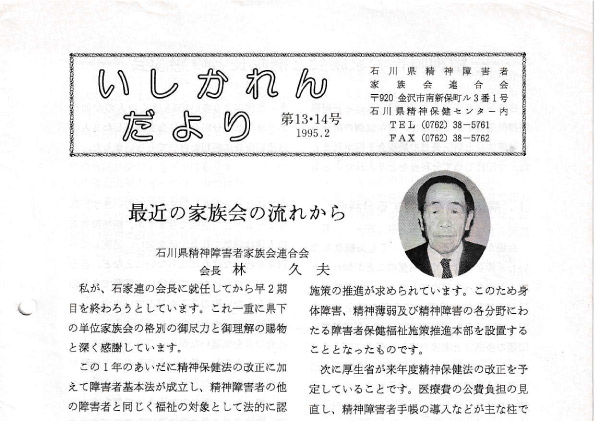 いしかれん
だより
第13・14号
1995.2
石川県精神障害者
家族会連合会
〒920 金沢市南新保町ル3番1号
石川県精神保健センター内
TEL (0762) 38-5761
FAX (0762) 38-5762
最近の家族会の流れから
石川県精神障害者家族会連合会
会長 林 久夫
私が、石家連の会長に就任してから早2期
目を終わろうとしています。これ一重に県下
の単位家族会の格別の御尽力と御理解の賜物
と深く感謝しています。
この1年のあいだに精神保健法の改正に加
えて障害者基本法が成立し、精神障害者の他
の障害者と同じく福祉の対象として法的に認
施策の推進が求められています。このため身
体障害、精神薄弱及び精神障害の各分野にわ
たる障害者保健福祉施策推進本部を設置する
こととなったものです。
次に厚生省が来年度精神保健法の改正を予
定していることです。医療費の公費負担の見
直し、精神障害者手帳の導入などが主な柱で